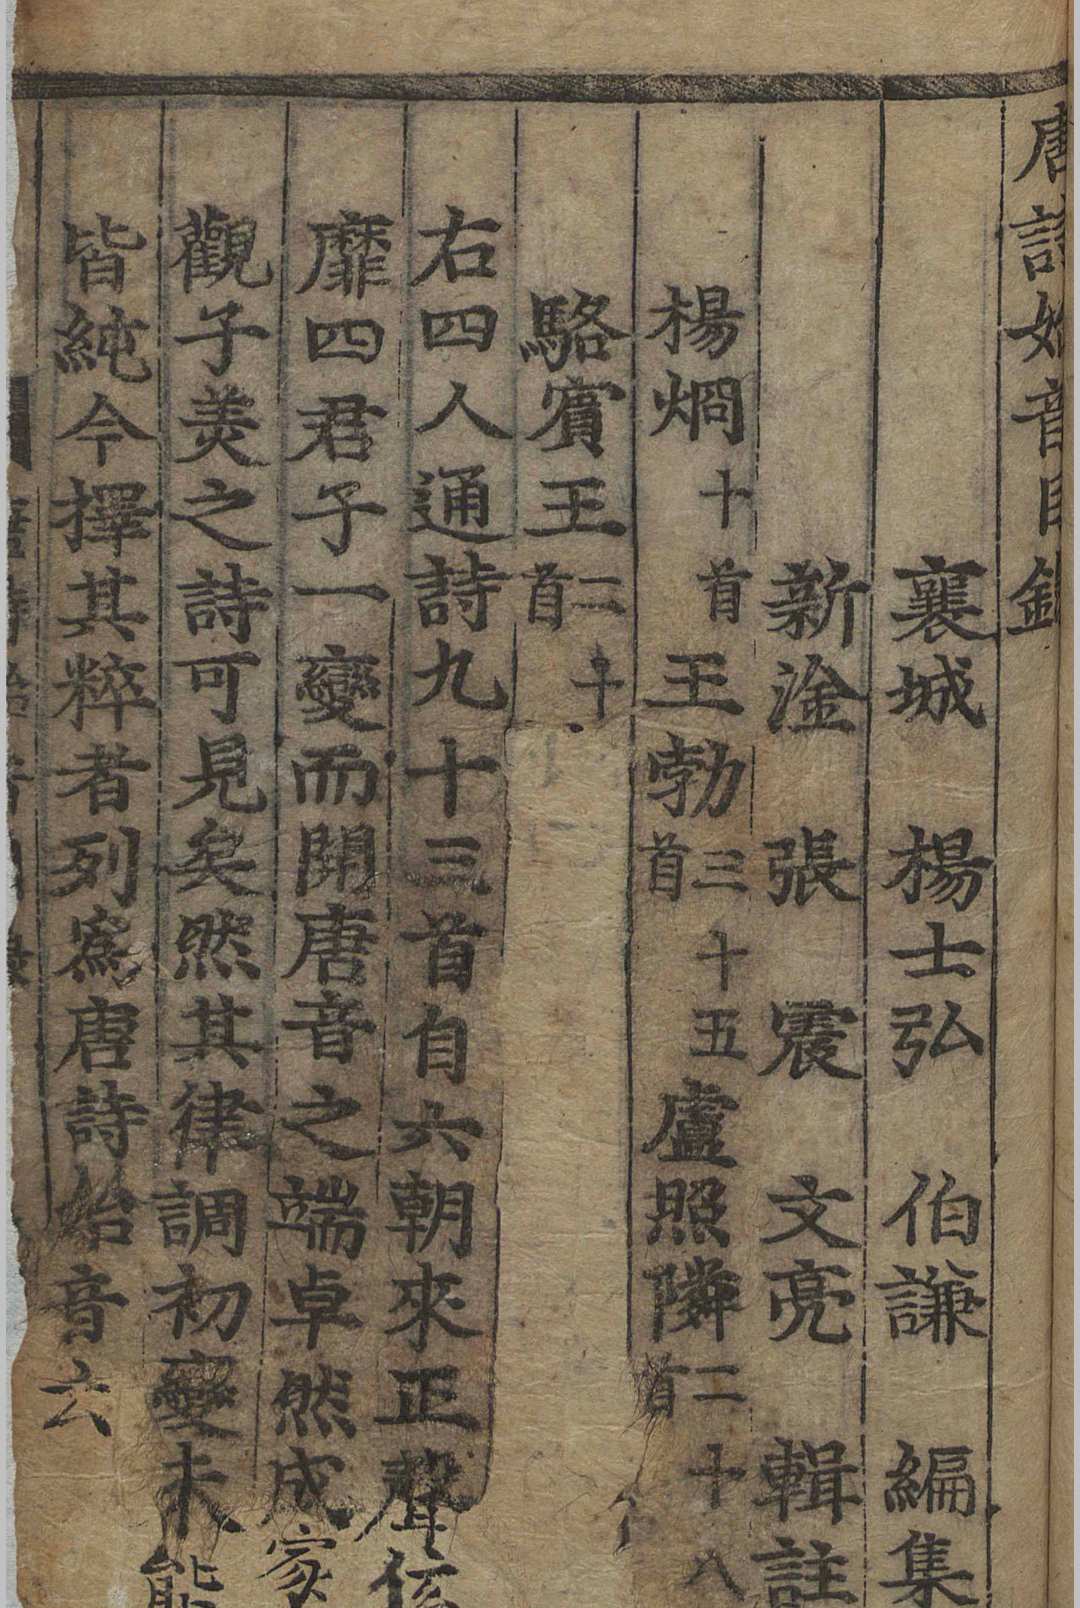 唐詩始音目錄
襄城　楊士弘　伯謙　編集
新淦　張　震　文亮　輯註
楊烱十首　王勃三十五首　盧照隣二十八首
駱賓王二十首
右四人通詩九十三首自六朝來正聲
靡四君子一變而開唐音之端卓然成家
觀子美之詩可見矣然其律調初變未能
皆純今擇其粹者列爲唐詩始音云